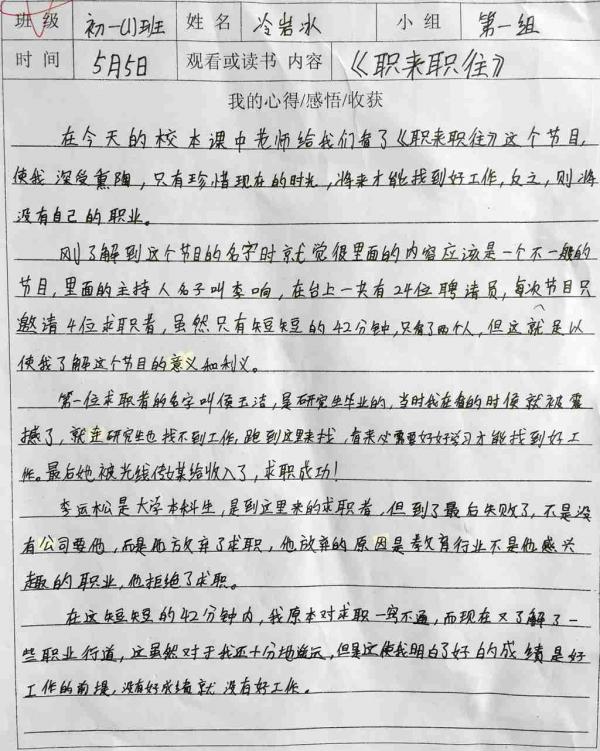 班级 初一(1)班 姓名 冷岩冰 小组 第一组
时间 5月5日 观看或读书 内容 《职来职往》
我的心得/感悟/收获
在今天的校本课中老师给我们看了《职来职往》这个节目,
使我深受熏陶,只有珍惜现在的时光,将来才能找到好工作,反之,则将
没有自己的职业。
刚了解到这个节目的名字时就觉得里面的内容应该是一个不一般的
节目,里面的主持人名子叫李响,在台上一共有24位聘请员,每次节目只
邀请4位求职者,虽然只有短短的42分钟,只看了两个人,但这就足以
使我了解这个节目的意义和利义。
第一位求职者的名字叫侯玉洁,是研究生毕业的,当时我在看的时候就被震
撼了,就连研究生也找不到工作,跑到这里来找,看来必需要好好学习才能找到好工
作。最后她被光线传媒给收入了,求职成功!
李运松是大学本科生,是到这里来的求职者,但到了最后失败了,不是没
有公司要他,而是他方放弃了求职,他放弃的原因是教育行业不是他感兴
趣的职业,他拒绝了求职。
在这短短的42分钟内,我原本对求职一窍不通,而现在又了解了一
些职业行道,这虽然对于我还十分地遥远,但是这使我明白了好的成绩是好
工作的前提,没有好成绩就没有好工作。